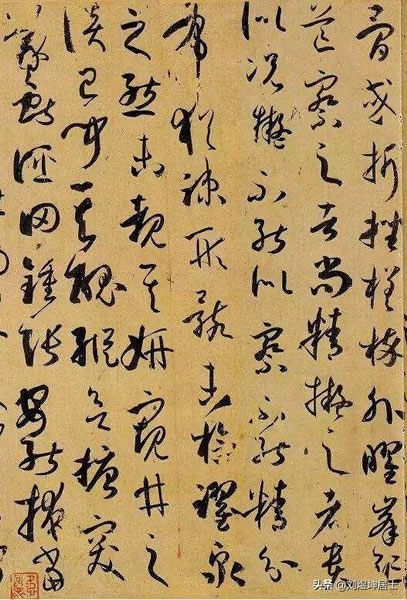 骨或折挫槎枿外曜鋒
芒察之者尚精擬之者貴
似况擬不能似察不能精分
布猶疎形骸未檢躍泉
之態未覩其妍窺井之
談已聞其醜縱欲搪突
羲獻誣罔鍾張安能掩當
头条 @刘煜坤居士